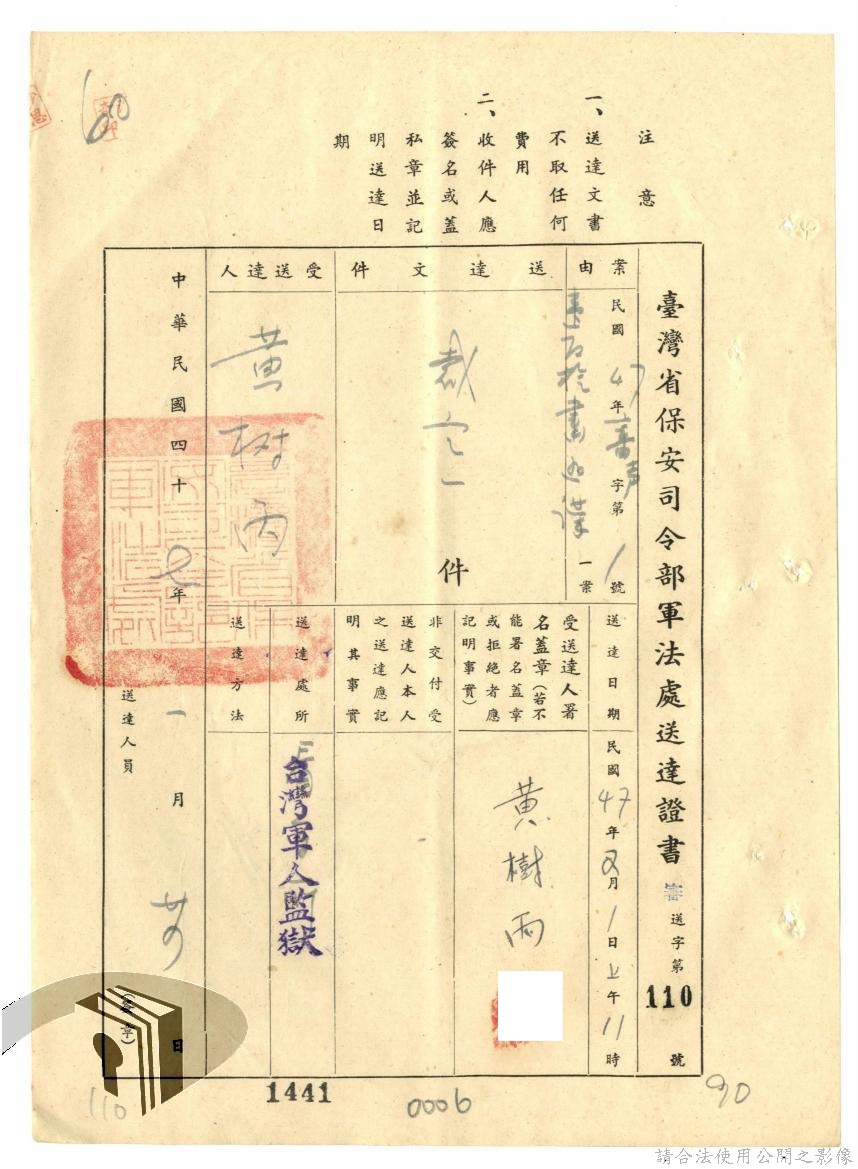 注意
一、送達文書
不取任何
費用
二、收件人應
簽名或蓋
私章並記
明送達日
期
臺灣省保安司令部軍法處送達證書 審送字第110號
案由
民國47年審声字第1號
一案
送達文件
裁定一件
受送達人
黃树雨
送達日期
民國47年2月1日上午11時
受送達人署
名蓋章(若不
能署名蓋章
或拒絕者應
記明事實)
黃樹雨
非交付受
送達人本人
之送達應記
明其事實
送達處所
台灣軍人監獄
送達方法
中華民國四十七年一月廿日
送達人員
(簽章)
110
1441
0006
90
請合法使用公開之影像